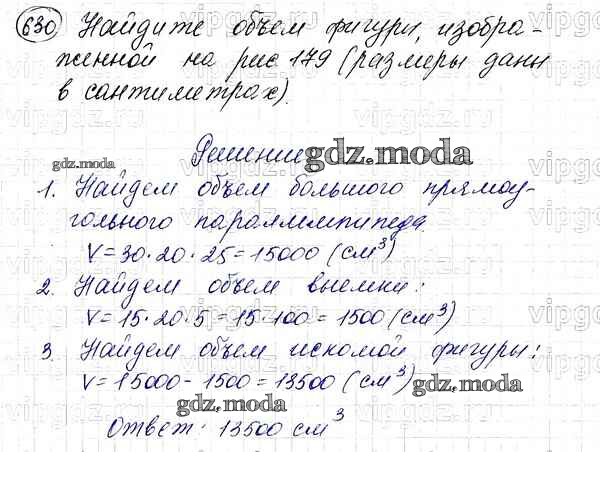 630 Найдите объем фигуры, изобра-
женной на рис 179 (размеры даны
в сантиметрах).
Решение
gdz.moda
gdz.moda
1. Найдем объем большого прямоу-
гольного параллелепипеда
V = 30 · 20 · 25 = 15000 (см³)
2. Найдем объем выемки:
V = 15 · 20 · 5 = 15 · 100 = 1500 (см³)
3. Найдем объем искомой фигуры:
V = 15000 - 1500 = 13500 (см³)
gdz.moda
gdz.moda
Ответ: 13500 см³